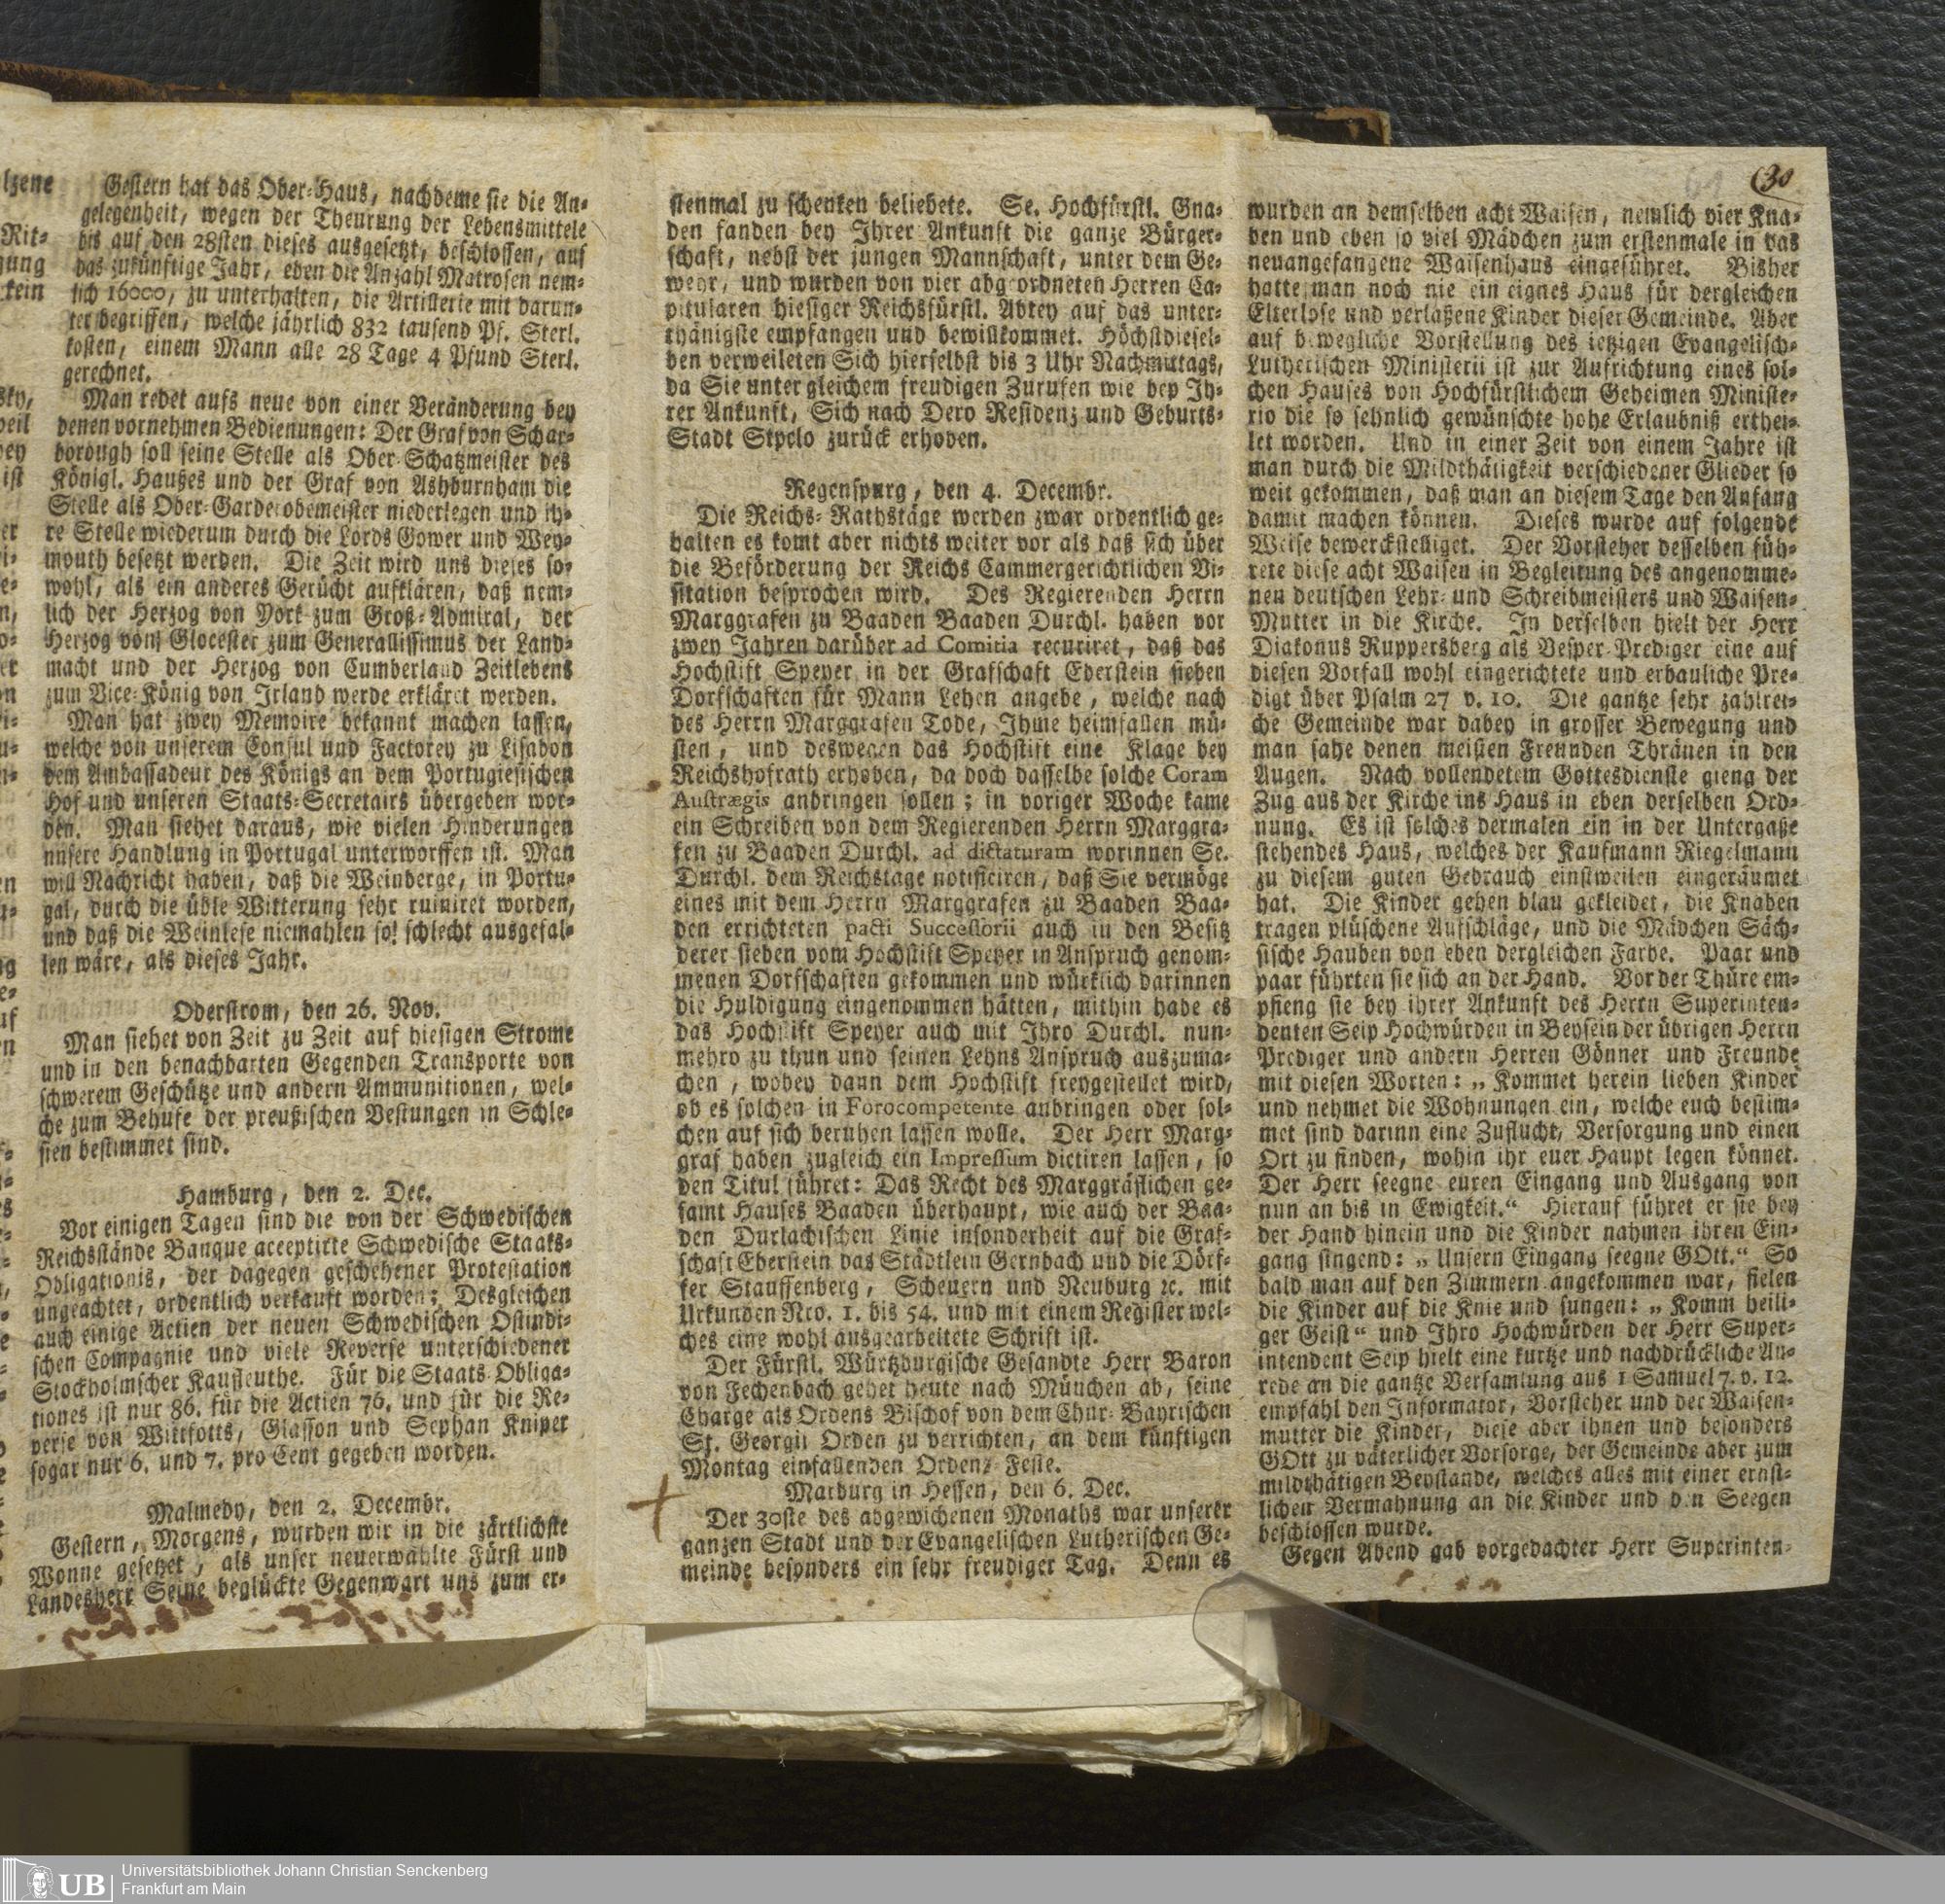 lzene
Rit⸗
gung
kein
sky,
weil
bey
ist
Gestern hat das Ober⸗Haus, nachdeme sie die An⸗
gelegenheit, wegen der Theurung der Lebensmittele
bis auf den 28sten dieses ausgesetzt, beschlossen, auf
das zukünftige Jahr, eben die Anzahl Matrosen nem⸗
lich 16000, zu unterhalten, die Artillerie mit darun⸗
ter begriffen, welche jährlich 832 tausend Pf. Sterl.
kosten, einem Mann alle 28 Tage 4 Pfund Sterl.
gerechnet.
Man redet aufs neue von einer Veränderung bey
denen vornehmen Bedienungen: Der Graf von Schar⸗
borough soll seine Stelle als Ober⸗Schatzmeister des
Königl. Haußes und der Graf von Ashburnham die
Stelle als Ober⸗Garderobemeister niederlegen und ih⸗
re Stelle wiederum durch die Lords Gower und Wey⸗
mouth besetzt werden. Die Zeit wird uns dieses so⸗
wohl, als ein anderes Gerücht aufklären, daß nem⸗
lich der Herzog von York zum Groß⸗Admiral, der
Herzog von Glocester zum Generallissimus der Land⸗
macht und der Herzog von Cumberland Zeitlebens
zum Vice⸗König von Irland werde erkläret werden.
Man hat zwey Memoire bekannt machen lassen,
welche von unserem Consul und Factorey zu Lisabon
dem Ambassadeur des Königs an dem Portugiesischen
Hof und unseren Staats⸗Secretairs übergeben wor⸗
den. Man siehet daraus, wie vielen Hinderungen
unsere Handlung in Portugal unterworffen ist. Man
will Nachricht haben, daß die Weinberge, in Portu⸗
gal, durch die üble Witterung sehr ruiniret worden,
und daß die Weinlese niemahlen so! schlecht ausgefal⸗
len wäre, als dieses Jahr.
Oderstrom, den 26. Nov.
Man siehet von Zeit zu Zeit auf hiesigen Strome
und in den benachbarten Gegenden Transporte von
schwerem Geschütze und andern Ammunitionen, wel⸗
che zum Behufe der preußischen Vestungen in Schle⸗
sien bestimmet sind.
Hamburg, den 2. Dec.
Vor einigen Tagen sind die von der Schwedischen
Reichsstände Banque acceptirte Schwedische Staats⸗
Obligationis, der dagegen geschehener Protestation
ungeachtet, ordentlich verkauft worden; Desgleichen
auch einige Actien der neuen Schwedischen Ostindi⸗
schen Compagnie und viele Reverse unterschiedener
Stockholmscher Kaufleuthe. Für die Staats⸗Obliga⸗
tiones ist nur 86. für die Actien 76. und für die Re⸗
verse von Wittfotts, Glasson und Sephan Kniper
sogar nur 6. und 7. pro Cent gegeben worden.
Malmedy, den 2. Decembr.
Gestern, Morgens, wurden wir in die zärtlichste
Wonne gesetzet, als unser neuerwählte Fürst und
Landesherr Seine beglückte Gegenwart uns zum er⸗
stenmal zu schenken beliebete. Se. Hochfürstl. Gna⸗
den fanden bey Ihrer Ankunft die ganze Bürger⸗
schaft, nebst der jungen Mannschaft, unter dem Ge⸗
wehr, und wurden von vier abgeordneten Herren Ca⸗
pitularen hiesiger Reichsfürstl. Abtey auf das unter⸗
thänigste empfangen und bewillkommet. Höchstdiesel⸗
ben verweileten Sich hierselbst bis 3 Uhr Nachmittags,
da Sie unter gleichem freudigen Zurufen wie bey Ih⸗
rer Ankunft, Sich nach Dero Residenz und Geburts⸗
Stadt Stvelo zurück erhoben.
Regenspurg, den 4. Decembr.
Die Reichs⸗Rathstäge werden zwar ordentlich ge⸗
halten es komt aber nichts weiter vor als daß sich über
die Beförderung der Reichs Cammergerichtlichen Vi⸗
sitation besprochen wird. Des Regierenden Herrn
Marggrafen zu Baaden Baaden Durchl. haben vor
zwey Jahren darüber ad Comitia recuriret, daß das
Hochstift Speyer in der Grafschaft Eberstein sieben
Dorfschaften für Mann Lehen angebe, welche nach
des Herrn Marggrafen Tode, Ihme heimfallen mü⸗
sten, und deswegen das Hochstift eine Klage bey
Reichshofrath erhoben, da doch dasselbe solche Coram
Austrægis anbringen sollen; in voriger Woche kame
ein Schreiben von dem Regierenden Herrn Marggra⸗
fen zu Baaden Durchl. ad dictaturam worinnen Se.
Durchl. dem Reichstage notificiren, daß Sie vermöge
eines mit dem Herrn Marggrafen zu Baaden Baa⸗
den errichteten pacti Successorii auch in den Besitz
derer sieben vom Hochstift Speyer in Anspruch genom⸗
menen Dorfschaften gekommen und würklich darinnen
die Huldigung eingenommen hätten, mithin habe es
das Hochstift Speyer auch mit Ihro Durchl. nun⸗
mehro zu thun und seinen Lehns Anspruch auszuma⸗
chen, wobey dann dem Hochstift freygestellet wird,
ob es solchen in Forocompetente anbringen oder sol⸗
chen auf sich beruhen lassen wolle. Der Herr Marg⸗
graf haben zugleich ein Impressum dictiren lassen, so
den Titul führet: Das Recht des Marggräflichen ge⸗
samt Hauses Baaden überhaupt, wie auch der Baa⸗
den Durlachischen Linie insonderheit auf die Graf⸗
schaft Eberstein das Städtlein Gernbach und die Dörf⸗
fer Stauffenberg, Scheuern und Neuburg ꝛc. mit
Urkunden Nro. 1. bis 54. und mit einem Register wel⸗
ches eine wohl ausgearbeitete Schrift ist.
Der Fürstl. Würtzburgische Gesandte Herr Baron
von Fechenbach gehet heute nach München ab, seine
Charge als Ordens Bischof von dem Chur⸗Bayrischen
St. Georgii Orden zu verrichten, an dem künftigen
Montag einfallenden Ordens⸗Feste.
Marburg in Hessen, den 6. Dec.
Der 30ste des abgewichenen Monaths war unserer
ganzen Stadt und der Evangelischen Lutherischen Ge⸗
meinde besonders ein sehr freudiger Tag. Denn es
30
wurden an demselben acht Waisen, nemlich vier Kna⸗
ben und eben so viel Mädchen zum erstenmale in das
neuangefangene Waisenhaus eingeführet. Bisher
hatte man noch nie ein eignes Haus für dergleichen
Elterlose und verlaßene Kinder dieser Gemeinde. Aber
auf bewegliche Vorstellung des ietzigen Evangelisch⸗
Lutherischen Ministerii ist zur Aufrichtung eines sol⸗
chen Hauses von Hochfürstlichem Geheimen Ministe⸗
rio die so sehnlich gewünschte hohe Erlaubniß erthei⸗
let worden. Und in einer Zeit von einem Jahre ist
man durch die Mildthätigkeit verschiedener Glieder so
weit gekommen, daß man an diesem Tage den Anfang
damit machen können. Dieses wurde auf folgende
Weise bewerckstelliget. Der Vorsteher desselben füh⸗
rete diese acht Waisen in Begleitung des angenomme⸗
nen deutschen Lehr⸗ und Schreibmeisters und Waisen⸗
Mutter in die Kirche. In derselben hielt der Herr
Diakonus Ruppersberg als Vesper⸗Prediger eine auf
diesen Vorfall wohl eingerichtete und erbauliche Pre⸗
digt über Psalm 27 v. 10. Die gantze sehr zahlrei⸗
che Gemeinde war dabey in grosser Bewegung und
man sahe denen meisten Freunden Thränen in den
Augen. Nach vollendetem Gottesdienste gieng der
Zug aus der Kirche ins Haus in eben derselben Ord⸗
nung. Es ist solches dermalen ein in der Untergaße
stehendes Haus, welches der Kaufmann Riegelmann
zu diesem guten Gebrauch einstweilen eingeräumet
hat. Die Kinder gehen blau gekleidet, die Knaben
tragen plüschene Aufschläge, und die Mädchen Säch⸗
sische Hauben von eben dergleichen Farbe. Paar und
paar führten sie sich an der Hand. Vor der Thüre em⸗
pfieng sie bey ihrer Ankunft des Herrn Superinten⸗
denten Seip Hochwürden in Beysein der übrigen Herrn
Prediger und andern Herren Gönner und Freunde
mit diesen Worten: „Kommet herein lieben Kinder
und nehmet die Wohnungen ein, welche euch bestim⸗
met sind darinn eine Zuflucht, Versorgung und einen
Ort zu finden, wohin ihr euer Haupt legen könnet.
Der Herr seegne euren Eingang und Ausgang von
nun an bis in Ewigkeit.“ Hierauf führet er sie bey
der Hand hinein und die Kinder nahmen ihren Ein⸗
gang singend: „Unsern Eingang seegne GOtt.“ So
bald man auf den Zimmern angekommen war, fielen
die Kinder auf die Knie und sungen: „Komm heili⸗
ger Geist“ und Ihro Hochwürden der Herr Super⸗
intendent Seip hielt eine kurtze und nachdrückliche An⸗
rede an die gantze Versamlung aus 1 Samuel 7. v. 12.
empfahl den Informator, Vorsteher und der Waisen⸗
mutter die Kinder, diese aber ihnen und besonders
GOtt zu väterlicher Vorsorge, der Gemeinde aber zum
mildthätigen Beystande, welches alles mit einer ernst⸗
lichen Vermahnung an die Kinder und den Seegen
beschlossen wurde.
Gegen Abend gab vorgedachter Herr Superinten⸗
UB
Universitätsbibliothek Johann Christian Senckenberg
Frankfurt am Main